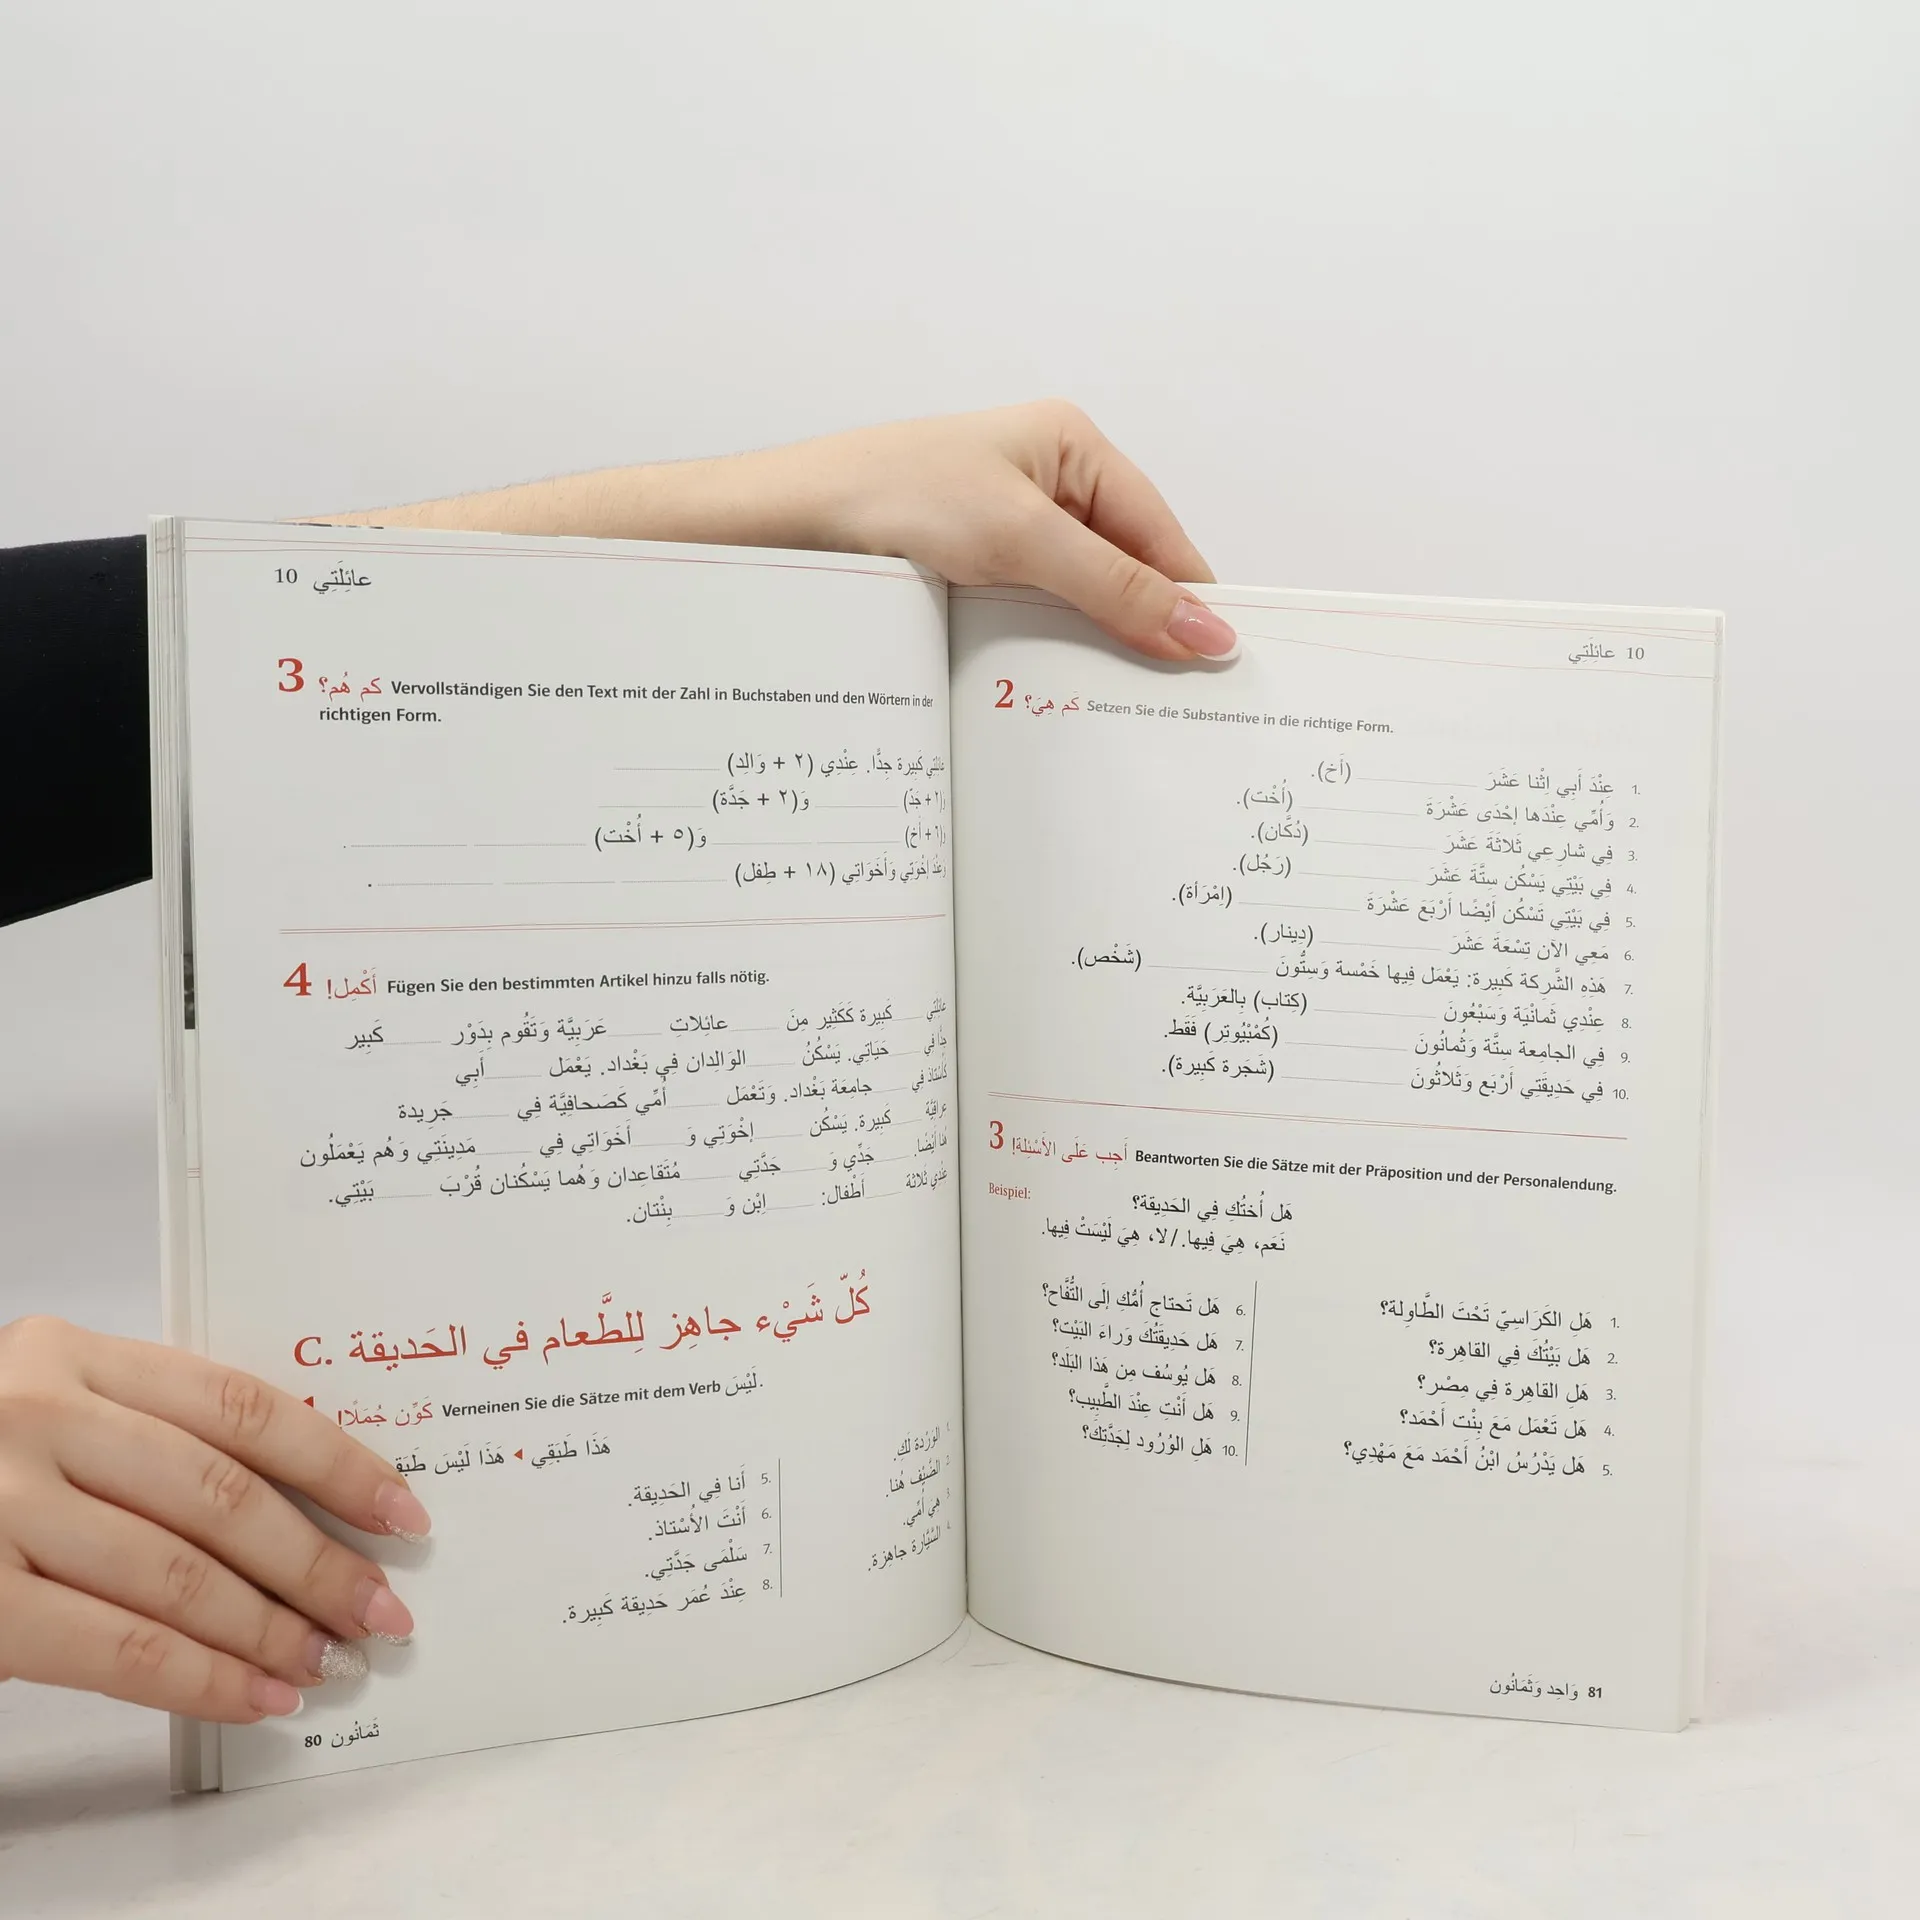 10 عائِلَتِي
3 كم هُم؟ Vervollständigen Sie den Text mit der Zahl in Buchstaben und den Wörtern in der
richtigen Form.
عائلتي كَبيرة جِدًّا. عِنْدِي (٢ + وَالِد)
وَ(٢ + جَدّ) وَ(٢ + جَدَّة)
وَ(٦ + أَخ) وَ(٥ + أُخْت) .
وَعِنْدَ إخْوَتي وَأَخَوَاتِي (١٨ + طِفل) .
4 أَكْمِل! Fügen Sie den bestimmten Artikel hinzu falls nötig.
عائلتي كَبيرة كَكَثير مِنَ عائِلاتِ عَرَبِيَّة وَتَقُوم بِدَوْر كَبِير
جِدًّا فِي حَيَاتِي. يَسْكُنُ الوَالِدان فِي بَغْداد. يَعْمَل أَبِي
كَأُسْتاذ فِي جامِعَة بَغْداد. وَتَعْمَل أُمِّي كَصَحافِيَّة فِي جَرِيدة
عراقِيَّة كَبِيرة. يَسْكُن إخْوَتِي وَ أَخَوَاتِي فِي مَدِينَتِي وَهُم يَعْمَلُون
هُنا أَيْضًا. جَدِّي وَ جَدَّتِي مُتَقاعِدان وَهُما يَسْكُنان قُرْبَ بَيْتِي.
عِنْدِي ثَلاثة أَطْفال: اِبْن وَ بِنْتان.
C. كُلّ شَيْء جاهِز لِلطَّعام في الحَديقة
كَوِّن جُمَلًا! Verneinen Sie die Sätze mit dem Verb لَيْسَ.
هَذَا طَبَقِي ◂ هَذَا لَيْسَ
الوَرْدة لَكِ.
الضَّيْف هُنا.
هِيَ أُمِّي.
السَّيَّارة جاهِزة.
5. أَنا فِي الحَدِيقة.
6. أَنْتَ الأُسْتاذ.
7. سَلْمَى جَدَّتِي.
8. عِنْدَ عُمَر حَدِيقة كَبِيرة.
80 ثَمَانُون
عائِلَتِي 10
2 كَم هِيَ؟ Setzen Sie die Substantive in die richtige Form.
1. عِنْدَ أَبِي اِثْنا عَشَرَ (أَخ).
2. وَأُمِّي عِنْدَها إحْدَى عَشْرَةَ (أُخْت).
3. فِي شارِعِي ثَلاثَةَ عَشَرَ (دُكَّان).
4. فِي بَيْتِي يَسْكُن سِتَّةَ عَشَرَ (رَجُل).
5. فِي بَيْتِي تَسْكُن أَيْضًا أَرْبَعَ عَشْرَةَ (اِمْرَأة).
6. مَعِي الآن تِسْعَةَ عَشَرَ (دِينار).
7. هَذِهِ الشَّرِكة كَبِيرة: يَعْمَل فِيها خَمْسة وَسِتُّونَ (شَخْص).
8. عِنْدِي ثَمانْيَة وَسَبْعُونَ (كِتاب) بِالعَرَبِيَّة.
9. فِي الجامِعة سِتَّة وَثَمانُونَ (كُمْبْيُوتِر) فَقَط.
10. فِي حَدِيقَتِي أَرْبَع وَثَلاثُونَ (شَجَرة كَبِيرة).
3 أَجِب عَلَى الأَسْئِلة! Beantworten Sie die Sätze mit der Präposition und der Personalendung.
Beispiel:
هَل أُختُكِ فِي الحَدِيقة؟
نَعَم، هِيَ فِيها./لا، هِيَ لَيْسَتْ فِيها.
1. هَلِ الكَرَاسِيّ تَحْتَ الطَّاوِلة؟
2. هَل بَيْتُكَ فِي القاهِرة؟
3. هَلِ القاهِرة فِي مِصْر؟
4. هَل تَعْمَل مَعَ بِنْت أَحْمَد؟
5. هَل يَدْرُسُ ابْنُ أَحْمَد مَعَ مَهْدِي؟
6. هَل تَحتاج أُمُّكِ إلَى التُّفَّاح؟
7. هَل حَدِيقَتُكَ وَراءَ البَيْت؟
8. هَل يُوسُف مِن هَذا البَلَد؟
9. هَل أَنْتِ عِنْدَ الطَّبِيب؟
10. هَلِ الوُرُود لِجَدَّتِكَ؟
وَاحِد وَثَمَانُون 81